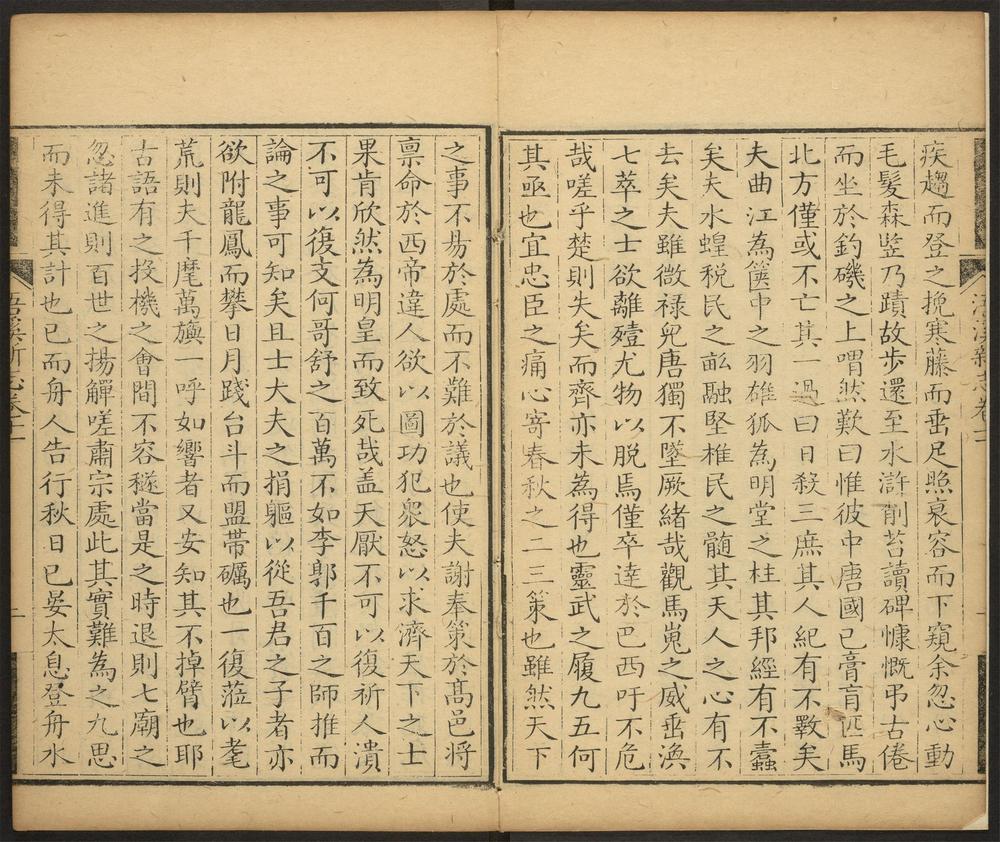 疾趨而登之挽寒藤而垂足照衰容而下窺余忽心動
毛髮森竪乃蹟故步還至水滸削苔讀碑慷慨弔古倦
而坐於釣磯之上喟然歎曰惟彼中唐國已膏肓匹馬
北方僅或不亡其一過曰日殺三庶其人紀有不斁矣
夫曲江為篋中之羽雄狐為明堂之柱其邦經有不蠹
矣夫水蝗税民之畝融堅椎民之髓其天人之心有不
去矣夫雖微禄兒唐獨不墜厥緒哉觀馬嵬之威垂渙
七萃之士欲離殪尤物以脱焉僅卒達於巴西吁不危
哉嗟乎楚則失矣而齊亦未為得也靈武之履九五何
其亟也宜忠臣之痛心寄春秋之二三策也雖然天下
之事不易於處而不難於議也使夫謝奉策於髙邑將
禀命於西帝違人欲以圖功犯衆怒以求濟天下之士
果肯欣然為明皇而致死哉盖天厭不可以復祈人潰
不可以復支何哥舒之百萬不如李郭千百之師推而
論之事可知矣且士大夫之捐軀以從吾君之子者亦
欲附龍鳳而攀日月踐台斗而盟帶礪也一復蒞以耄
荒則夫千麾萬旟一呼如響者又安知其不掉臂也耶
古語有之投機之會間不容穟當是之時退則七廟之
忽諸進則百世之揚觶嗟肅宗處此其實難為之九思
而未得其計也已而舟人告行秋日已晏太息登舟水
浯溪新志卷二